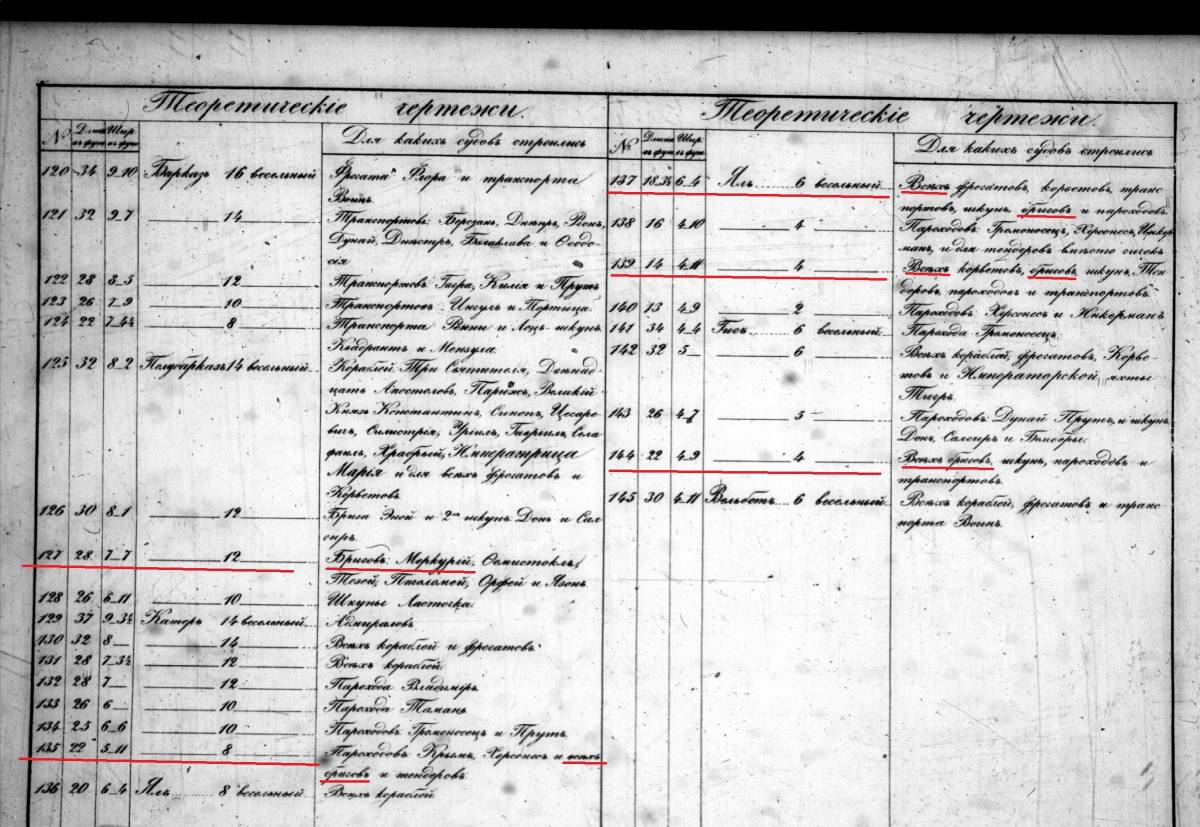 Теоретическіе чертежи.
№ Длина въ фут Шир. въ фут Для какихъ судовъ строились
120 34 9_10 Барказъ 16 весельный Фрегата Флора и транспорта
Воинъ.
121 32 9_7 14 Транспортовъ: Березань, Днѣпръ, Ріонъ,
Дунай, Днѣстръ, Балаклава и Ѳеодо-
сія
122 28 8_5 12 Транспортовъ: Гагра, Килія и Прутъ
123 26 7_9 10 Транспортовъ: Ингулъ и Портица
124 22 7_4½ 8 Транспорта Рымни и Лоцъ шкунъ
Квадрантъ и Мензула
125 32 8_2 Полубарказъ 14 весельный Кораблей: Три Святителя, Двѣнад-
цать Апостоловъ, Парижъ, Великій
Князь Константинъ, Синопъ, Цесаре-
вичъ, Силистрія, Уріилъ, Гавріилъ, Села
фаилъ, Храбрый, Императрица
Марія и для всѣхъ фрегатовъ и
Корветовъ.
126 30 8_1 12 Брига Эней и 2хъ шкунъ: Донъ и Сал
гиръ.
127 28 7_7 12 Бриговъ: Меркурій, Ѳемистоклъ,
Тезей, Птоломей, Орфей и Язонъ
128 26 6_11 10 Шкуны Ласточка
129 37 9_3½ Катеръ 14 весельный Адмираловъ
130 32 8_ 14 Всѣхъ кораблей и фрегатовъ
131 28 7_3½ 12 Всѣхъ кораблей
132 28 7_ 12 Парохода Владиміръ
133 26 6_ 10 Парохода Тамань
134 25 6_6 10 Пароходовъ: Громоносецъ и Прутъ
135 22 5_11 8 Пароходовъ: Крымъ, Херсонесъ и всѣхъ
бриговъ и тендеровъ
136 20 6_4 Ялъ 8 весельный Всѣхъ кораблей
Теоретическіе чертежи.
№ Длина въ фут Шир. въ фут Для какихъ судовъ строились
137 18.3½ 6_4 Ялъ 6 весельный Всѣхъ фрегатовъ, корветовъ, транс
портовъ, шкунъ, бриговъ и пароходовъ
138 16 4.10 4 Пароходовъ: Громоносецъ, Херсонесъ, Инкер
манъ, и для тендеровъ вмѣсто гичекъ
139 14 4.11 4 Всѣхъ корветовъ, бриговъ, шкунъ, Тен
деровъ, пароходовъ и транспортовъ
140 13 4.9 2 Пароходовъ: Херсонесъ и Инкерманъ
141 34 4_4 Гигъ 6 весельный Парохода Громоносецъ
142 32 5_ 6 Всѣхъ кораблей, фрегатовъ, Корве-
товъ и Императорской яхты
Тигръ.
143 26 4_7 5 Пароходовъ: Дунай, Прутъ, и шкунъ
Донъ, Салгиръ и Бомборы
144 22 4.9 4 Всѣхъ бриговъ, шкунъ, пароходовъ и
транспортовъ.
145 30 4.11 Вельботъ 6 весельный Всѣхъ кораблей, фрегатовъ и транс
порта Воинъ.